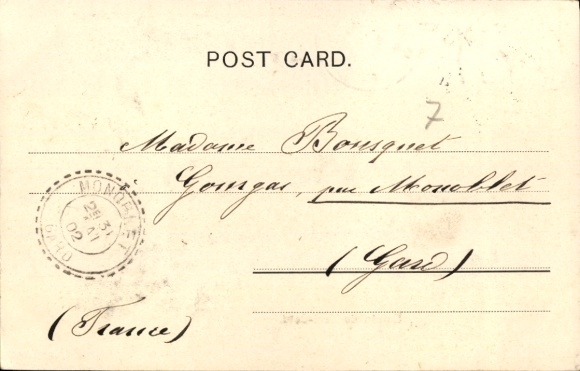 POST CARD.
7
Madame Bousquet
Gourgas, par Monoblet
(Gard)
(France)
MONOBLET
2E 31
02
GARD